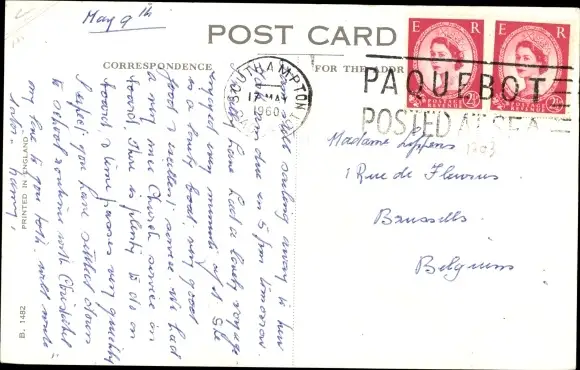 May 9th
POST CARD
CORRESPONDENCE
FOR THE ADDR
E R
E R
POSTAGE
REVENUE
2½
POSTAGE
REVENUE
2½
SOUTHAMPTON
17 MAY
1960
PAQUEBOT
POSTED AT SEA
1203
Madame
1 Rue de Fleurus
Brussels
Belgium
still sailing away
due in 5 pm tomorrow.
have had a lovely voyage
enjoyed every minute of it. She
is a lovely boat. very good
food & excellent service. We had
a very nice Church service on
board. There is plenty to do on
board & time passes very quickly
I expect you have settled down
to school routine with
my love to you both. will write
PRINTED IN ENGLAND
B. 1482